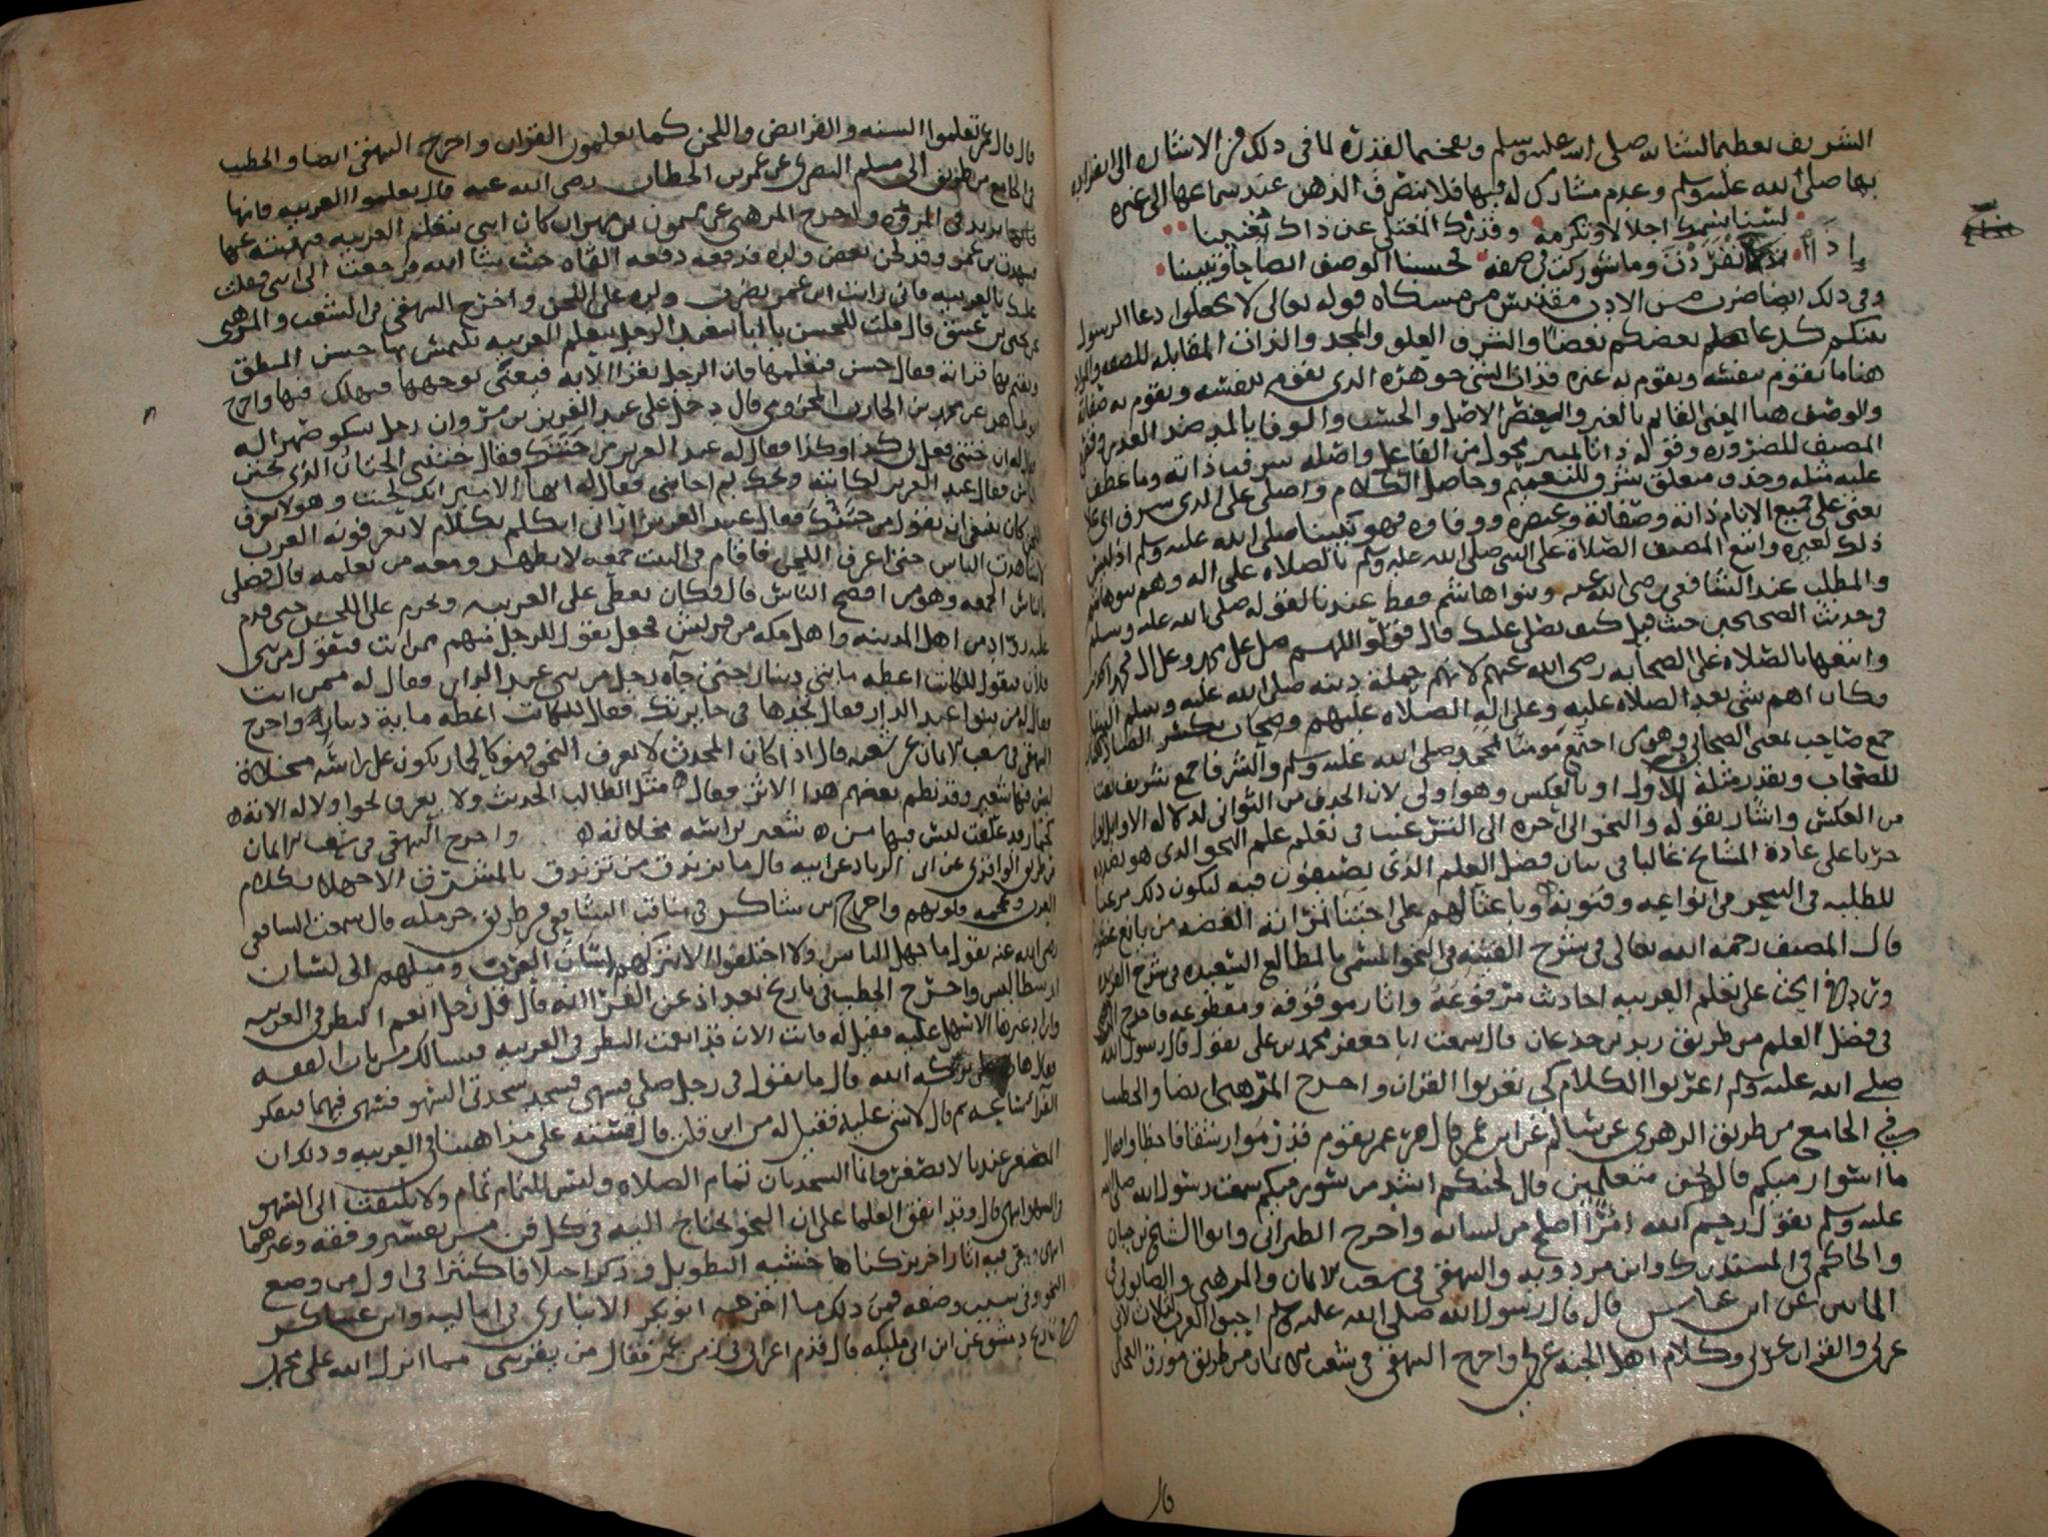 الشريف تعظيما لشانه صلى الله عليه وسلم وتفخيما لقدره لما في ذلك من الاشاره الى انفراده
بها صلى الله عليه وسلم وعدم مشارك له فيها فلا ينصرف الذهن عند سماعها الى غيره
لسنا نسميك اجلالا وتكرمة وقدرك المعتلى عن ذاك يغنينا
اذا انفردت وما شوركت في صفة فحسبنا الوصف ايضاحا وتبيينا
وفي ذلك ايضا ضرب من الادب مقتبس من مشكاه قوله تعالى لا تجعلوا دعا الرسول
بينكم كدعا بعضكم بعضا والشرف العلو والمجد والذات المقابله للصفه والمراد
هنا ما يقوم بنفسه ويقوم به غيره فذات الشي جوهره الذي يقوم بنفسه ويقوم به صفاته
والوصف هنا المعنى القايم بالغير والعنصر الاصل والحسب والوفا بالمد ضد الغدر وقصره
المصنف للضروره وقوله ذاتا تمييز محول من الفاعل واصله شرفت ذاته وما عطف
عليه مثله وحذف متعلق شرف للتعميم وحاصل الكلام واصلى على الذي شرف اي علا
يعني على جميع الانام ذاته وصفاته وعنصره ووفاوه فهو نبينا صلى الله عليه وسلم اذ ليس
ذلك لغيره واتبع المصنف الصلاة على النبي صلى الله عليه وسلم بالصلاه على اله وهم بنوهاشم
والمطلب عند الشافعي رضي الله عنه وبنوا هاشم فقط عندنا لقوله صلى الله عليه وسلم
في حديث الصحيحين حيث قيل كيف نصلي عليك قال قولوا اللهم صل على محمد وعلى ال محمد
واتبعها بالصلاه على الصحابه رضي الله عنهم لانهم حملة دينه صلى الله عليه وسلم الينا
فكان اهم شي بعد الصلاه عليه وعلى اله الصلاه عليهم وصحاب بكسر الصاد
جمع صاحب بمعنى الصحابي وهو من اجتمع مومنا بمحمد صلى الله عليه وسلم والشرفا جمع شريف نعت
للصحاب ويقدر مثله للاول او بالعكس وهو اولى لان الحذف من الثواني لدلاله الاوايل اولى
من العكس واشار بقوله والنحو الى اخره الى الترغيب في تعلم علم النحو الذي هو بصدده
جريا على عادة المشايخ غالبا في بيان فضل العلم الذي يصنفون فيه ليكون ذلك مرغبا
للطلبه في التبحر في انواعه وفنونه وباعثا لهم على اجتنا ثمراته الغضه من يانع غصونه
قال المصنف رحمه الله تعالى في شرح الفيته في النحو المسمى بالمطالع السعيده في شرح الفريده
ورد في الحث على تعلم العربيه احاديث مرفوعة واثار موقوفة ومقطوعه فاخرج المرهبي
في فضل العلم من طريق زيد بن جدعان قال سمعت ابا جعفر محمد بن علي يقول قال رسول الله
صلى الله عليه وسلم اعربوا الكلام كي تعربوا القران واخرج المرهبي ايضا والخطيب
في الجامع من طريق الزهري عن سالم عن ابن عمر قال مر عمر بقوم قد رموا رشقا فاخطاوا فقال
ما اسوا رميكم قالوا نحن متعلمين قال لحنكم اشد من سوء رميكم سمعت رسول الله صلى الله
عليه وسلم يقول رحم الله امرا اصلح من لسانه واخرج الطبراني وابوا الشيخ بن حبان
والحاكم في المستدرك وابن مردويه والبيهقي في شعب الايمان والمرهبي والصابوني في
الماتين عن ابن عباس قال قال رسول الله صلى الله عليه وسلم احبوا العرب لثلاث لاني
عربي والقران عربي وكلام اهل الجنه عربي واخرج البيهقي في شعب الايمان من طريق مورق العجلي
قال
قال قال عمر تعلموا السنه والفرايض واللحن كما تعلمون القران واخرج البيهقي ايضا والخطيب
في الجامع من طريق ابي مسلم البصري عن عمر بن الخطاب رضي الله عنه قال تعلموا العربيه فانها
تزيد في المروه واخرج المرهبي عن ميمون بن مهران كان ابني يتعلم العربيه فنهيته عنها
فشهدت بن عمر وقد لحن بعض ولده فدفعه دفعه القاه حيث شا الله فرجعت الى ابني فقلت
عليك بالعربيه فاني رايت ابن عمر يضرب ولده على اللحن واخرج البيهقي في الشعب والمرهبي
عن يحيى بن عتيق قال قلت للحسن يا ابا سعيد الرجل يتعلم العربيه يلتمس بها حسن المنطق
ويقيم بها قراته فقال حسن فتعلمها فان الرجل يقرا الايه فيعيى بوجهها فيهلك فيها واخرج
ابو طاهر عن محمد بن الحارث المخزومي قال دخل على عبد العزيز بن مروان رجل يشكو صهرا له
فقال ان ختني فعل بي كذا وكذا فقال له عبد العزيز من ختنك فقال ختنني الختان الذي يختن
الناس فقال عبد العزيز لكاتبه ويحك بم اجابني فقال له ايها الامير انك لحنت وهو لا يعرف
اللحن كان ينبغي ان تقول من ختنك فقال عبد العزيز اراني اتكلم بكلام لا تعرفونه العرب
لا شاهدت الناس حتى اعرف اللحن فاقام في البيت جمعه لا يظهر ومعه من يعلمه قال فصلى
بالناس الجمعه وهو من افصح الناس قال فكان يعطي على العربيه ويحرم على اللحن حتى قدم
عليه زوار من اهل المدينه واهل مكه من قريش فجعل يقول للرجل منهم ممن انت فيقول من بني
فلان فيقول للكاتب اعطه مايتي دينار حتى جآه رجل من بني عبد الدار فقال له ممن انت
فقال من بنوا عبد الدار فقال تجدها في جايزتك فقال للكاتب اعطه ماية دينار واخرج
البيهقي في شعب الايمان عن شعبه قال اذا كان المحدث لا يعرف النحو فهو كالحمار يكون على راسه مخلاة
ليس فيها شعير وقد نظم بعضهم هذا الاثر فقال مثل الطالب الحديث ولا يعرف نحوا ولا له الاته
كحمار قد علقت ليس فيها من شعير براسه مخلاته واخرج البيهقي في شعب الايمان
من طريق الواقدي عن ابي الزناد عن ابيه قال ما تزندق من تزندق بالمشرق الا جهلا بكلام
العرب وعجمة قلوبهم واخرج ابن شاكر في مناقب الشافعي من طريق حرمله قال سمعت الشافعي
رضي الله عنه يقول ما جهل الناس ولا اختلفوا الا لتركهم لسان العرب وميلهم الى لسان
ارسطاطاليس واخرج الخطيب في تاريخ بغداد عن الفرا انه قال قل رجل انعم النظر في العربيه
واراد علما غيره الا سهل عليه فقيل له فانت الان قد انعمت النظر في العربيه فنسالك من باب الفقه
فقال هات على بركه الله قال ما تقول في رجل صلى فسهى فسجد سجدتي السهو فسهى فيهما ففكر
الفرا ساعه ثم قال لا شي عليه فقيل له من اين قلت قال قسته على مذاهبنا في العربيه وذلك ان
المصغر عندنا لا يصغر وانما السجدتان تمام الصلاه وليس للتمام تمام ولا يلتفت الى السهو
والسهو انتهى قال وقد اتفق العلما على ان النحو يحتاج اليه في كل فن من تفسير وفقه وغيرهما
انتهى وبقي فيه اثارا اخر تركناها خشيه التطويل وذكروا اختلافا كثيرا في اول من وضع
النحو وفي سبب وضعه فمن ذلك ما اخرجه ابو بكر الانباري في اماليه وابن عساكر
في تاريخ دمشق عن ابن ابي مليكه قال قدم اعرابي في زمن عمر فقال من يقريني مما انزل الله على محمد